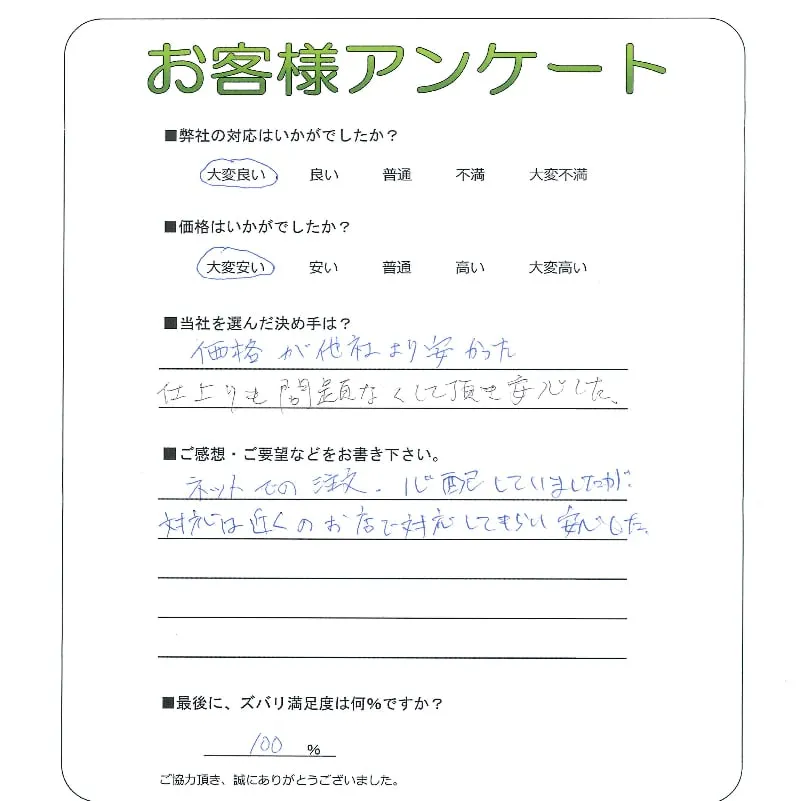 お客様アンケート
■弊社の対応はいかがでしたか？
大変良い 良い 普通 不満 大変不満
■価格はいかがでしたか？
大変安い 安い 普通 高い 大変高い
■当社を選んだ決め手は？
価格が他社より安かった
仕上りも問題なくして頂き安心した。
■ご感想・ご要望などをお書き下さい。
ネットでの注文、心配していましたが
対応は近くのお店で対応してもらい安心した。
■最後に、ズバリ満足度は何%ですか？
100 %
ご協力頂き、誠にありがとうございました。